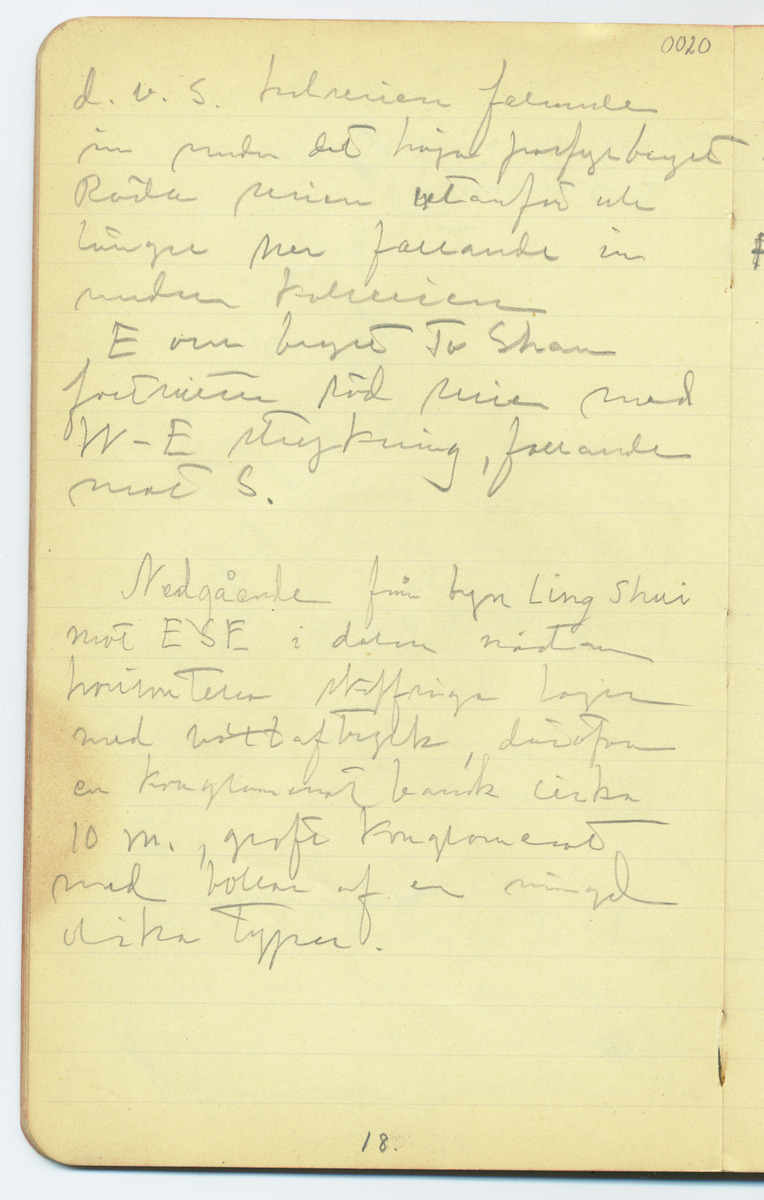 0020
d. v. s. kolserien fallande
in under det höga porfyrberget
Röda serien utanför och
längre ner fallande in
under kolserien
E om berget To Shan
fortsätter röd serien med
W-E strykning, fallande
mot S.
Nedgående från byn Ling Shui
mot ESE i dalen nästan
horisontella skiffriga lager
med växtaftryck, därofvan
en konglomerat bank cirka
10 m., groft konglomerat
med bollar af en mängd
olika typer.
18.